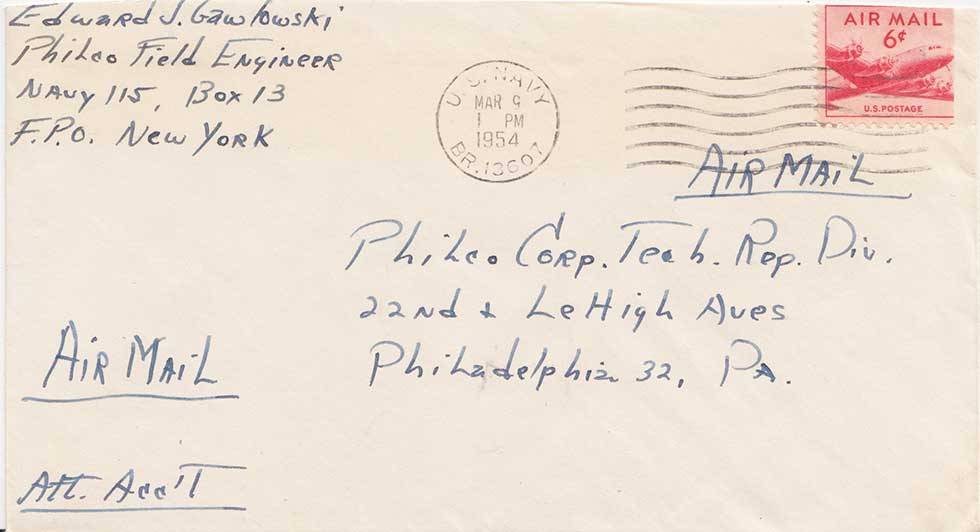 Edward J. Gawlowski
Philco Field Engineer
Navy 115, Box 13
F.P.O. New York
U.S. NAVY
MAR 9
1 PM
1954
BR. 13607
AIR MAIL
6¢
U.S. POSTAGE
AIR MAIL
Philco Corp. Tech. Rep. Div.
22nd & LeHigh Aves
Philadelphia 32, PA.
AIR MAIL
Att. Acc'T